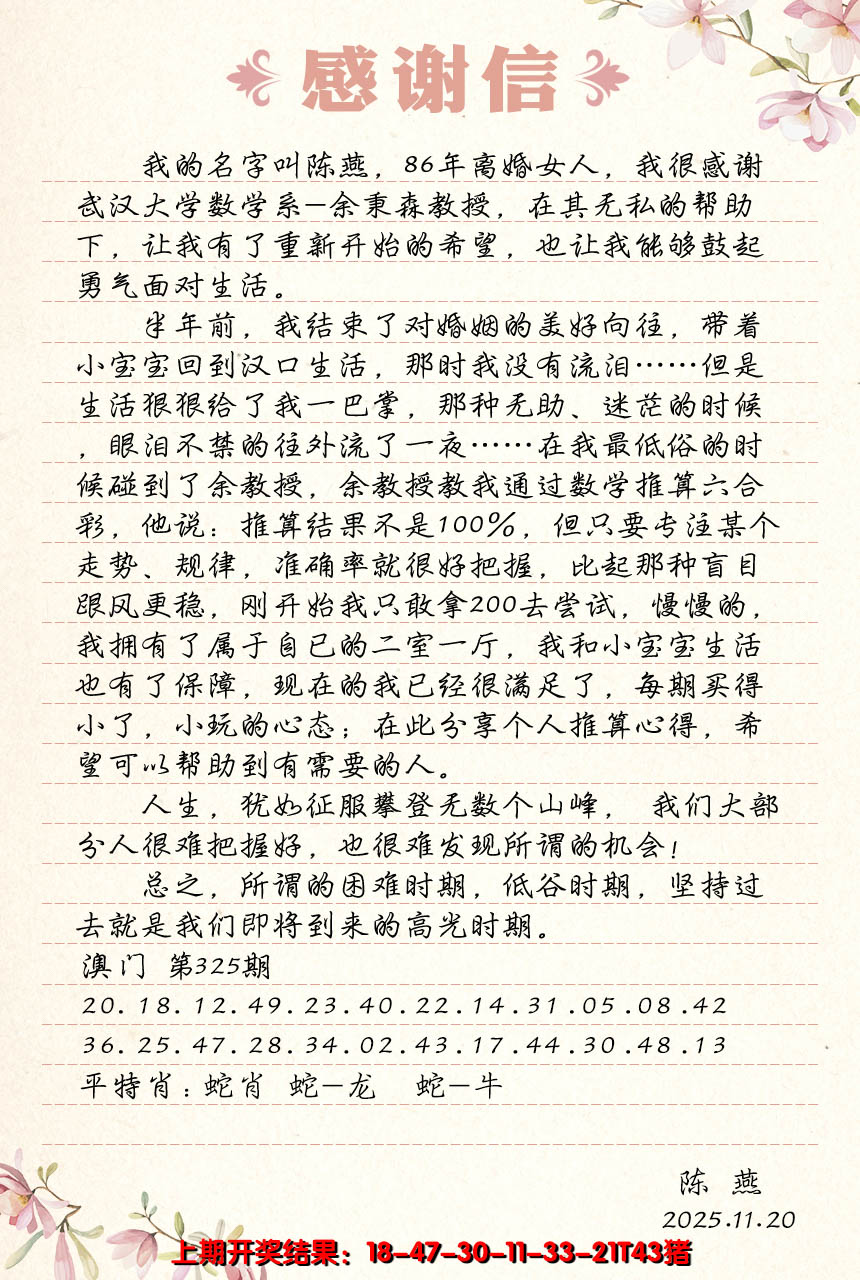 感谢信
我的名字叫陈燕，86年离婚女人，我很感谢
武汉大学数学系-余秉森教授，在其无私的帮助
下，让我有了重新开始的希望，也让我能够鼓起
勇气面对生活。
半年前，我结束了对婚姻的美好向往，带着
小宝宝回到汉口生活，那时我没有流泪……但是
生活狠狠给了我一巴掌，那种无助、迷茫的时候
，眼泪不禁的往外流了一夜……在我最低俗的时
候碰到了余教授，余教授教我通过数学推算六合
彩，他说：推算结果不是100%，但只要专注某个
走势、规律，准确率就很好把握，比起那种盲目
跟风更稳，刚开始我只敢拿200去尝试，慢慢的，
我拥有了属于自已的二室一厅，我和小宝宝生活
也有了保障，现在的我已经很满足了，每期买得
小了，小玩的心态；在此分享个人推算心得，希
望可以帮助到有需要的人。
人生，犹如征服攀登无数个山峰， 我们大部
分人很难把握好，也很难发现所谓的机会！
总之，所谓的困难时期，低谷时期，坚持过
去就是我们即将到来的高光时期。
澳门 第325期
20.18.12.49.23.40.22.14.31.05.08.42
36.25.47.28.34.02.43.17.44.30.48.13
平特肖：蛇肖 蛇-龙 蛇-牛
陈 燕
2025.11.20
上期开奖结果：18-47-30-11-33-21T43猪